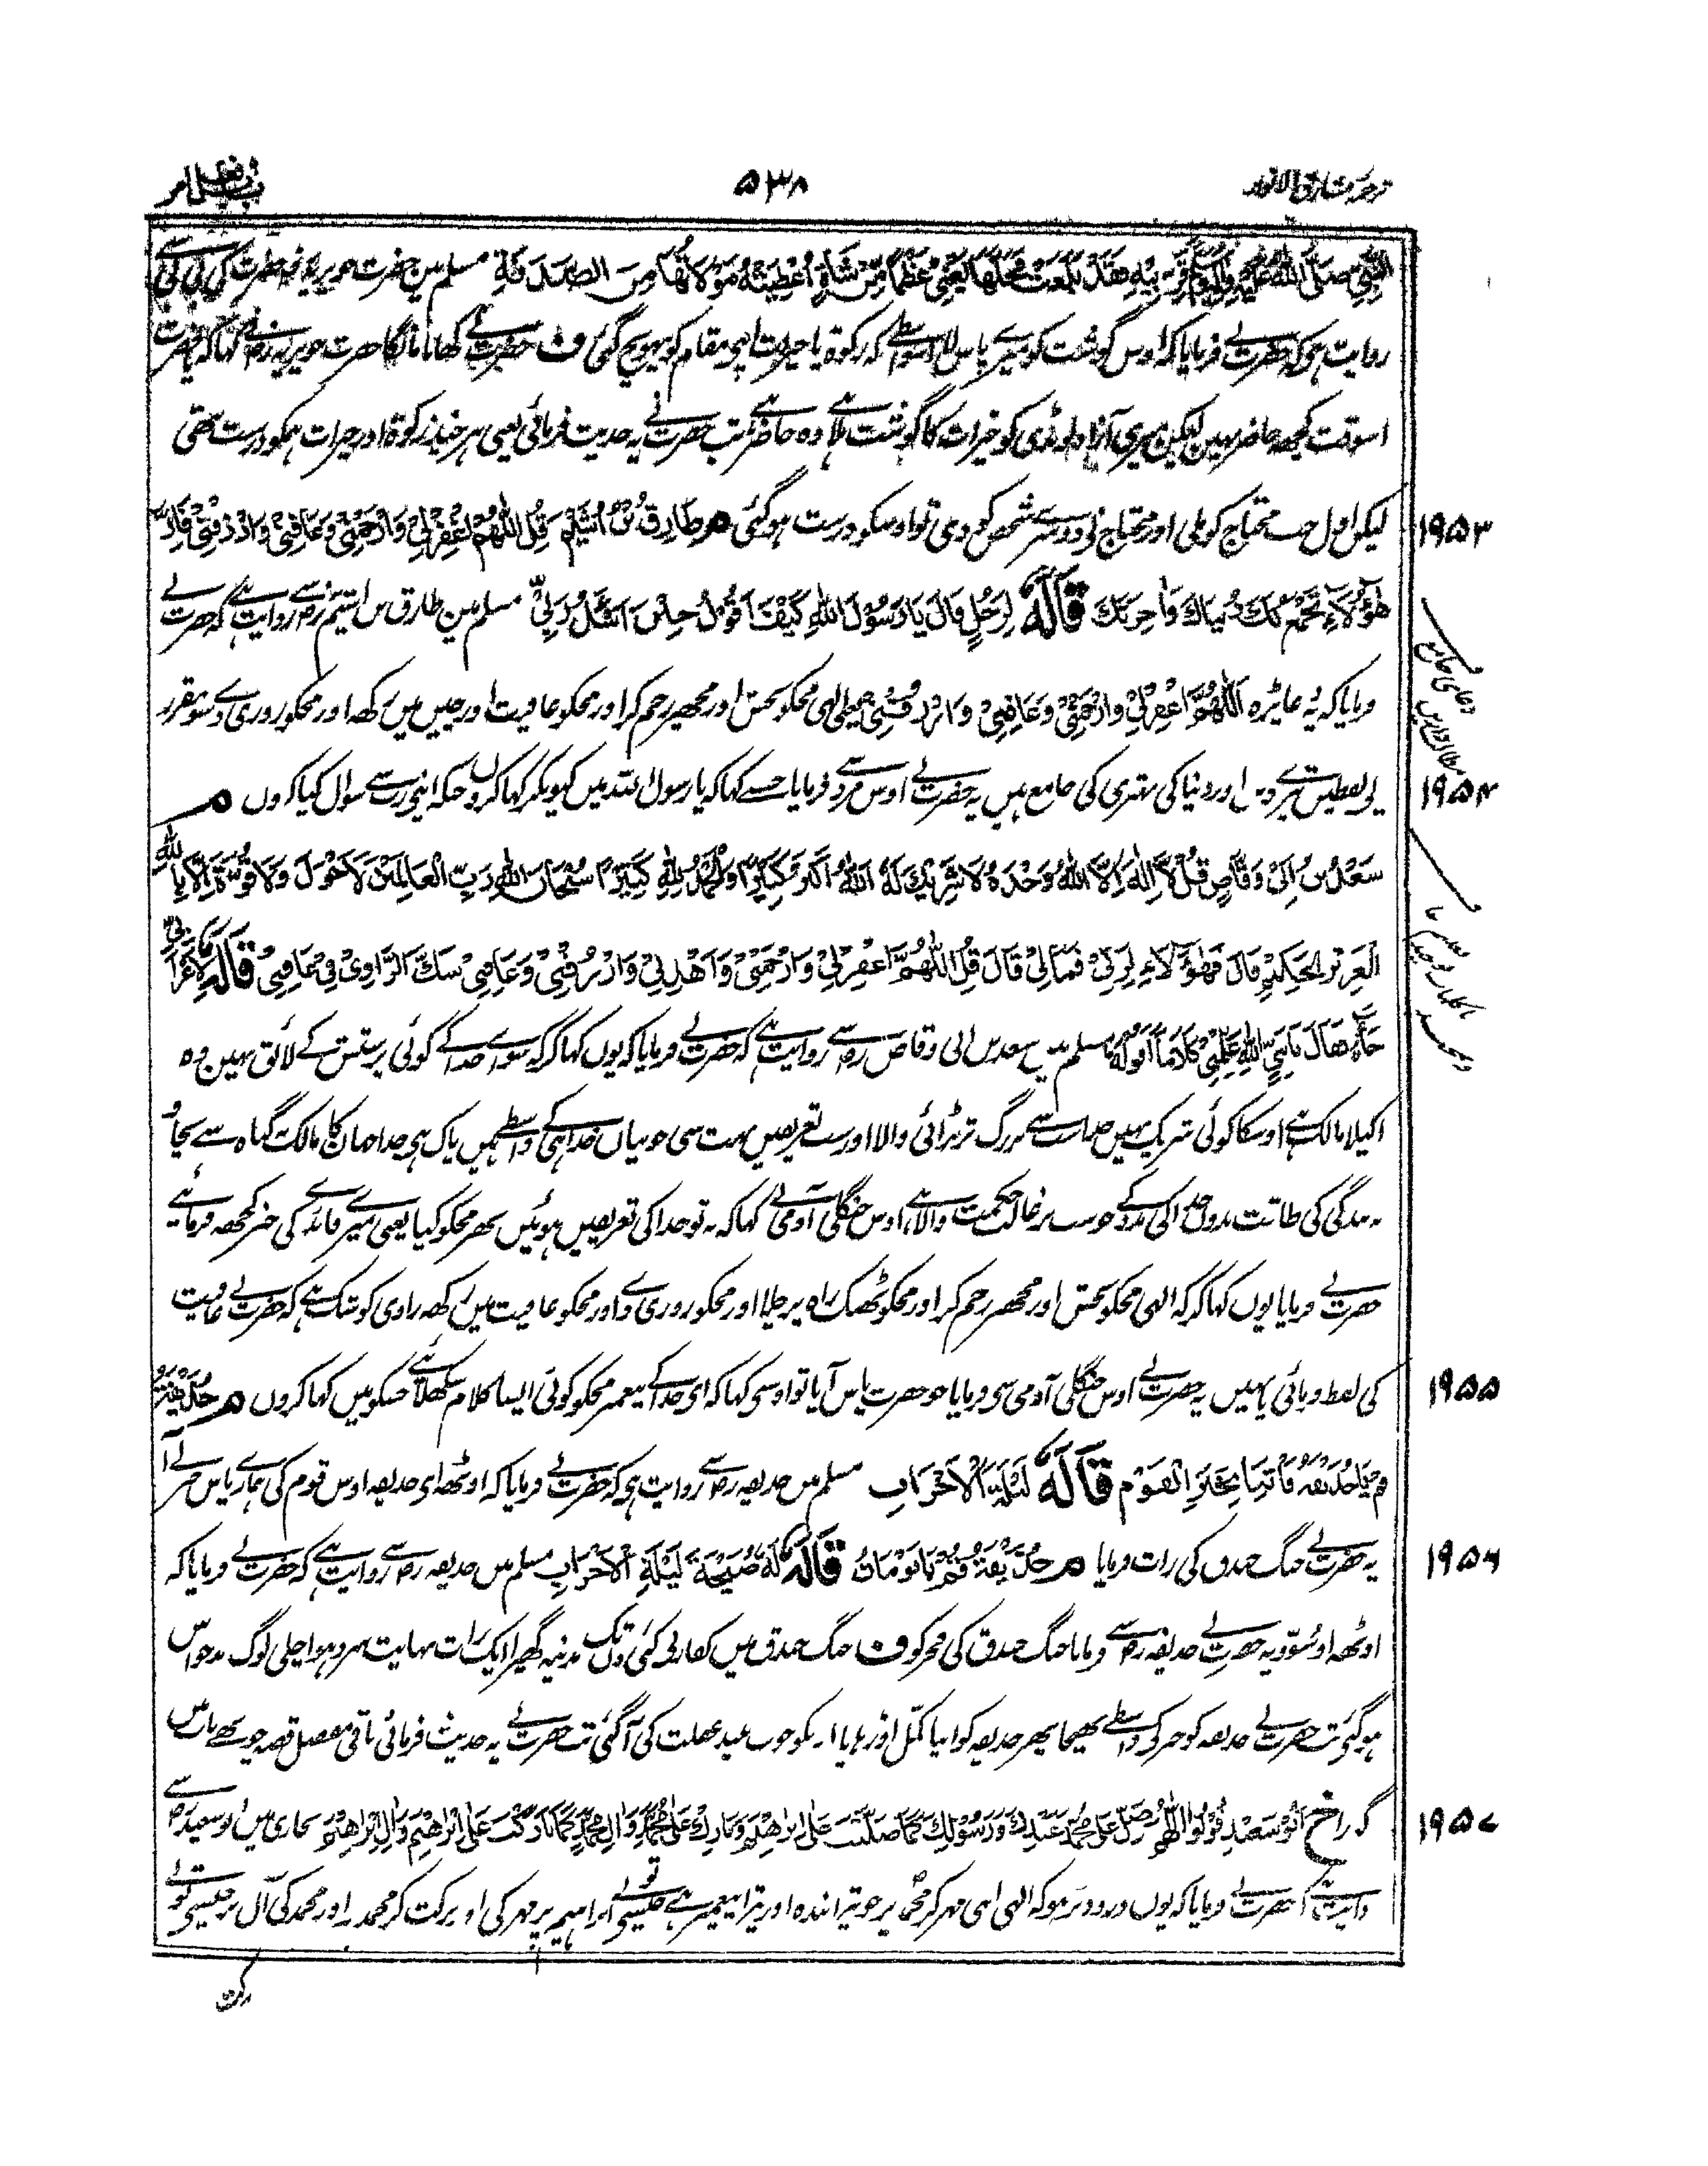 ترجمہ مشارق الانوار
۵۳۸
باب فعل امر
النبي صلى الله عليه وسلم قربيه فقد بلغت محلها يعني عظما من شاة أعطيته مولاتها من الصدقة مسلم مین حضرت جویریہ حضرت کی بی بی سے
روایت ہی کہ حضرت نے فرمایا کہ اوس گوشت کو میرے پاس لا اسواسطے کہ زکوٰۃ یا خیرات اپنی مقام کو پہونچ گئی ف حضرت نے کھانا مانگا حضرت جویریہ رض نے کہا کہ یا حضرت
اسوقت کچھ حاضر نہین لیکن میری آزاد لونڈی کو خیرات کا گوشت ملا ہے وہ حاضر ہے تب حضرت نے یہ حدیث فرمائی یعنی ہر چند زکوٰۃ اور خیرات ہمکو درست نتھی
لیکن اول جب محتاج کو ملی اور محتاج نی دوسرے شخص کو دی تو اوسکو درست ہو گئی م طَارِقُ بْنُ أَشْيَمَ قُلِ اللَّهُمَّ اغْفِرْ لِي وَارْحَمْنِي وَعَافِنِي وَارْزُقْنِي فَإِنَّ
۱۹۵۳
هَؤُلَاءِ تَجْمَعُ لَكَ دُنْيَاكَ وَآخِرَتَكَ قَالَهُ لِرَجُلٍ قَالَ يَا رَسُولَ اللهِ كَيْفَ أَقُولُ حِينَ أَسْأَلُ رَبِّي مسلم مین طارق بن اشیم رض سے روایت ہے کہ حضرت نے
فرمایا کہ یہ دعا پڑہ اللَّهُمَّ اغْفِرْ لِي وَارْحَمْنِي وَعَافِنِي وَارْزُقْنِي یعنی الہی مجکو بخش اور مجھپر رحم کر اور مجکو عافیت اور چین میں رکھہ اور مجکو روزی دے سو مقرر
یہ لفظیں تیرے دین اور دنیا کی بہتری کی جامع ہیں یہ حضرت نے اوس مرد سے فرمایا جسنے کہا کہ یا رسول اللہ میں کیونکر کہا کروں جبکہ اپنی رب سے سوال کیا کروں م
۱۹۵۴
سَعْدُ بْنُ أَبِي وَقَّاصٍ قُلْ لَا إِلَهَ إِلَّا اللهُ وَحْدَهُ لَا شَرِيكَ لَهُ اللهُ أَكْبَرُ كَبِيرًا وَالْحَمْدُ لِلَّهِ كَثِيرًا سُبْحَانَ اللهِ رَبِّ الْعَالَمِينَ لَا حَوْلَ وَلَا قُوَّةَ إِلَّا بِاللهِ
الْعَزِيزِ الْحَكِيمِ قَالَ فَهَؤُلَاءِ لِرَبِّي فَمَا لِي قَالَ قُلِ اللَّهُمَّ اغْفِرْ لِي وَارْحَمْنِي وَاهْدِنِي وَارْزُقْنِي وَعَافِنِي شَكَّ الرَّاوِي فِي عَافِنِي قَالَهُ لِأَعْرَابِيٍّ
جَاءَهُ فَقَالَ يَا نَبِيَّ اللهِ عَلِّمْنِي كَلَامًا أَقُولُهُ مسلم میں سعد بن ابی وقاص رض سے روایت ہے کہ حضرت نے فرمایا کہ یوں کہا کر کہ سوا خدا کے کوئی پرستش کے لائق نہین وہ
اکیلا مالک ہے اوسکا کوئی شریک نہیں خدا سب سے بزرگ تر بڑائی والا اور سب تعریفیں بہت سی خوبیاں خدا ہی کے واسطے ہیں پاک ہی خدا جہان کا مالک گناہ سے بچاؤ
نہ بندگی کی طاقت بدوں خدا کی مدد کے جو سب پر غالب حکمت والا ہے اوس جنگلی آدمی نے کہا کہ یہ تو خدا کی تعریفیں ہوئیں پھر مجکو کیا یعنی میرے فائدے کی خبر کچھہ فرمائیے
حضرت نے فرمایا یوں کہا کر کہ الہی مجکو بخش اور مجھپر رحم کر اور مجکو ٹھیک راہ پر چلا اور مجکو روزی دے اور مجکو عافیت میں رکھہ راوی کو شک ہے کہ حضرت نے عافیت
کی لفظ فرمائی یا نہیں یہ حضرت نے اوس جنگلی آدمی سی فرمایا جو حضرت پاس آیا تو اوسی کہا کہ ای خدا کے پیغمبر مجکو کوئی ایسا کلام سکھلائیے جسکو میں کہا کروں م حُذَيْفَةُ
۱۹۵۵
قُمْ يَا حُذَيْفَةُ فَأْتِنَا بِخَبَرِ الْقَوْمِ قَالَهُ لَيْلَةَ الْأَحْزَابِ مسلم میں حذیفہ رض سے روایت ہی کہ حضرت نے فرمایا کہ اوٹھہ ای حذیفہ اوس قوم کی ہمارے پاس خبر لے آ
یہ حضرت نے جنگ خندق کی رات فرمایا م حُذَيْفَةُ قُمْ يَا نَوْمَانُ قَالَهُ لَهُ صَبِيحَةَ لَيْلَةِ الْأَحْزَابِ مسلم میں حذیفہ رض سے روایت ہے کہ حضرت نے فرمایا کہ
۱۹۵۶
اوٹھہ او سوتو یہ حضرت نے حذیفہ رض سے فرمایا جنگ خندق کی فجر کو ف جنگ خندق میں کفار نے کئی دن تک مدینہ گھیرا ایک رات نہایت سرد ہوا چلی لوگ بدحواس
ہو گئے تب حضرت نے حذیفہ کو خبر کی واسطے بھیجا پھر حذیفہ کو اپنا کمل اوڑہایا جب نیند غفلت کی آگئی تب حضرت نے یہ حدیث فرمائی باقی مفصل قصہ چوتھے باب میں
گذرا خ أَبُو سَعِيدٍ قُولُوا اللَّهُمَّ صَلِّ عَلَى مُحَمَّدٍ عَبْدِكَ وَرَسُولِكَ كَمَا صَلَّيْتَ عَلَى إِبْرَاهِيمَ وَبَارِكْ عَلَى مُحَمَّدٍ وَآلِ مُحَمَّدٍ كَمَا بَارَكْتَ عَلَى إِبْرَاهِيمَ وَآلِ إِبْرَاهِيمَ بخاری میں ابو سعید رض سے
۱۹۵۷
روایت ہے کہ حضرت نے فرمایا کہ یوں درود پڑہو کہ الہی اپنی مہر کر محمد پر جو تیرا بندہ اور تیرا پیغمبر ہے جیسی تو نے ابراہیم پر مہر کی اور برکت کر محمد پر اور محمد کی آل پر جیسی تو نے
برکت